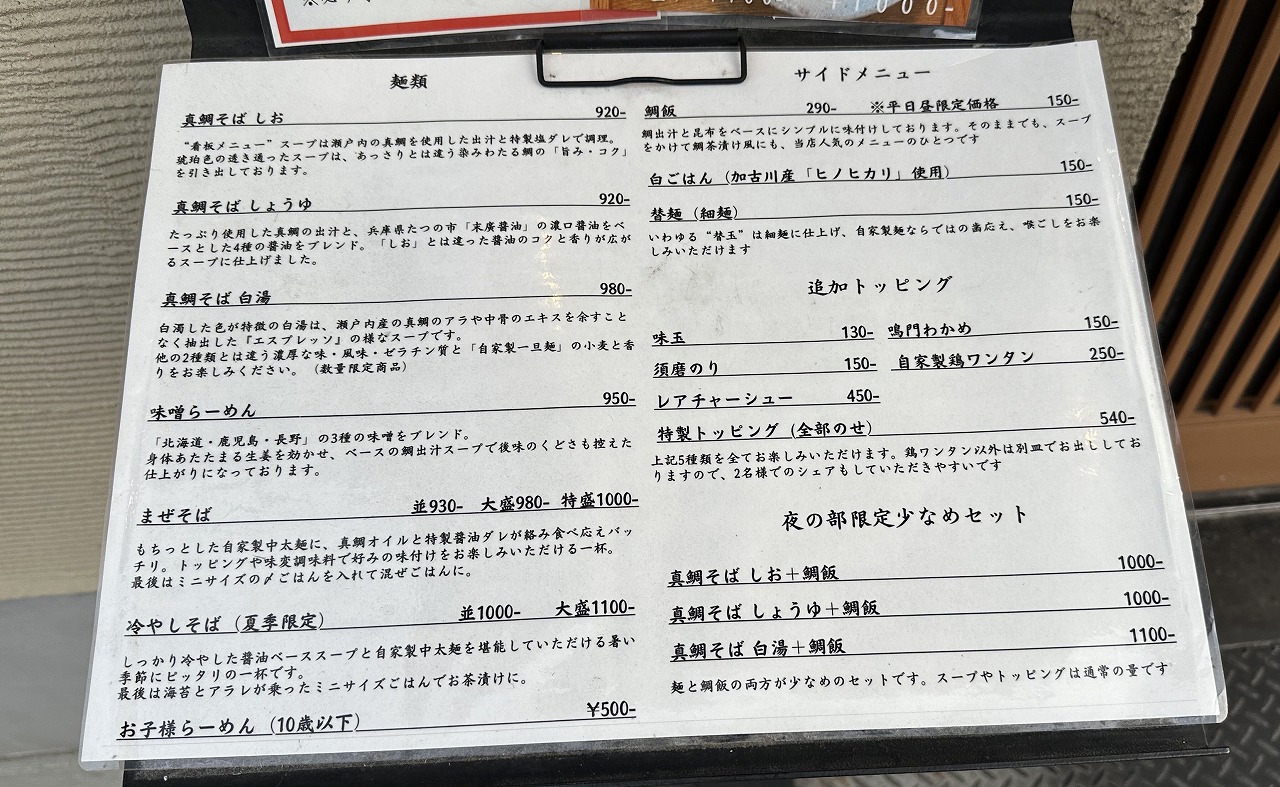 麺類
真鯛そば しお 920-
“看板メニュー”スープは瀬戸内の真鯛を使用した出汁と特製塩ダレで調理。
琥珀色の透き通ったスープは、あっさりとは違う染みわたる鯛の「旨み・コク」
を引き出しております。
真鯛そば しょうゆ 920-
たっぷり使用した真鯛の出汁と、兵庫県たつの市「末廣醤油」の濃口醤油をベ
ースとした4種の醤油をブレンド。「しお」とは違った醤油のコクと香りが広が
るスープに仕上げました。
真鯛そば 白湯 980-
白濁した色が特徴の白湯は、瀬戸内産の真鯛のアラや中骨のエキスを余すこと
なく抽出した『エスプレッソ』の様なスープです。
他の2種類とは違う濃厚な味・風味・ゼラチン質と「自家製一旦麺」の小麦と香
りをお楽しみください。（数量限定商品）
味噌らーめん 950-
「北海道・鹿児島・長野」の3種の味噌をブレンド。
身体あたたまる生姜を効かせ、ベースの鯛出汁スープで後味のくどさも控えた
仕上がりになっております。
まぜそば 並930- 大盛980- 特盛1000-
もちっとした自家製中太麺に、真鯛オイルと特製醤油ダレが絡み食べ応えバッ
チリ。トッピングや味変調味料で好みの味付けをお楽しみいただける一杯。
最後はミニサイズの〆ごはんを入れて混ぜごはんに。
冷やしそば（夏季限定） 並1000- 大盛1100-
しっかり冷やした醤油ベーススープと自家製中太麺を堪能していただける暑い
季節にピッタリの一杯です。
最後は海苔とアラレが乗ったミニサイズごはんでお茶漬けに。
お子様らーめん（10歳以下） ¥500-
サイドメニュー
鯛飯 290- ※平日昼限定価格 150-
鯛出汁と昆布をベースにシンプルに味付けしております。そのままでも、スープ
をかけて鯛茶漬け風にも、当店人気のメニューのひとつです
白ごはん（加古川産「ヒノヒカリ」使用） 150-
替麺（細麺） 150-
いわゆる“替玉”は細麺に仕上げ、自家製麺ならではの歯応え、喉ごしをお楽
しみいただけます
追加トッピング
味玉 130- 鳴門わかめ 150-
須磨のり 150- 自家製鶏ワンタン 250-
レアチャーシュー 450-
特製トッピング（全部のせ） 540-
上記5種類を全てお楽しみいただけます。鶏ワンタン以外は別皿でお出ししてお
りますので、2名様でのシェアもしていただきやすいです
夜の部限定少なめセット
真鯛そば しお＋鯛飯 1000-
真鯛そば しょうゆ＋鯛飯 1000-
真鯛そば 白湯＋鯛飯 1100-
麺と鯛飯の両方が少なめのセットです。スープやトッピングは通常の量です